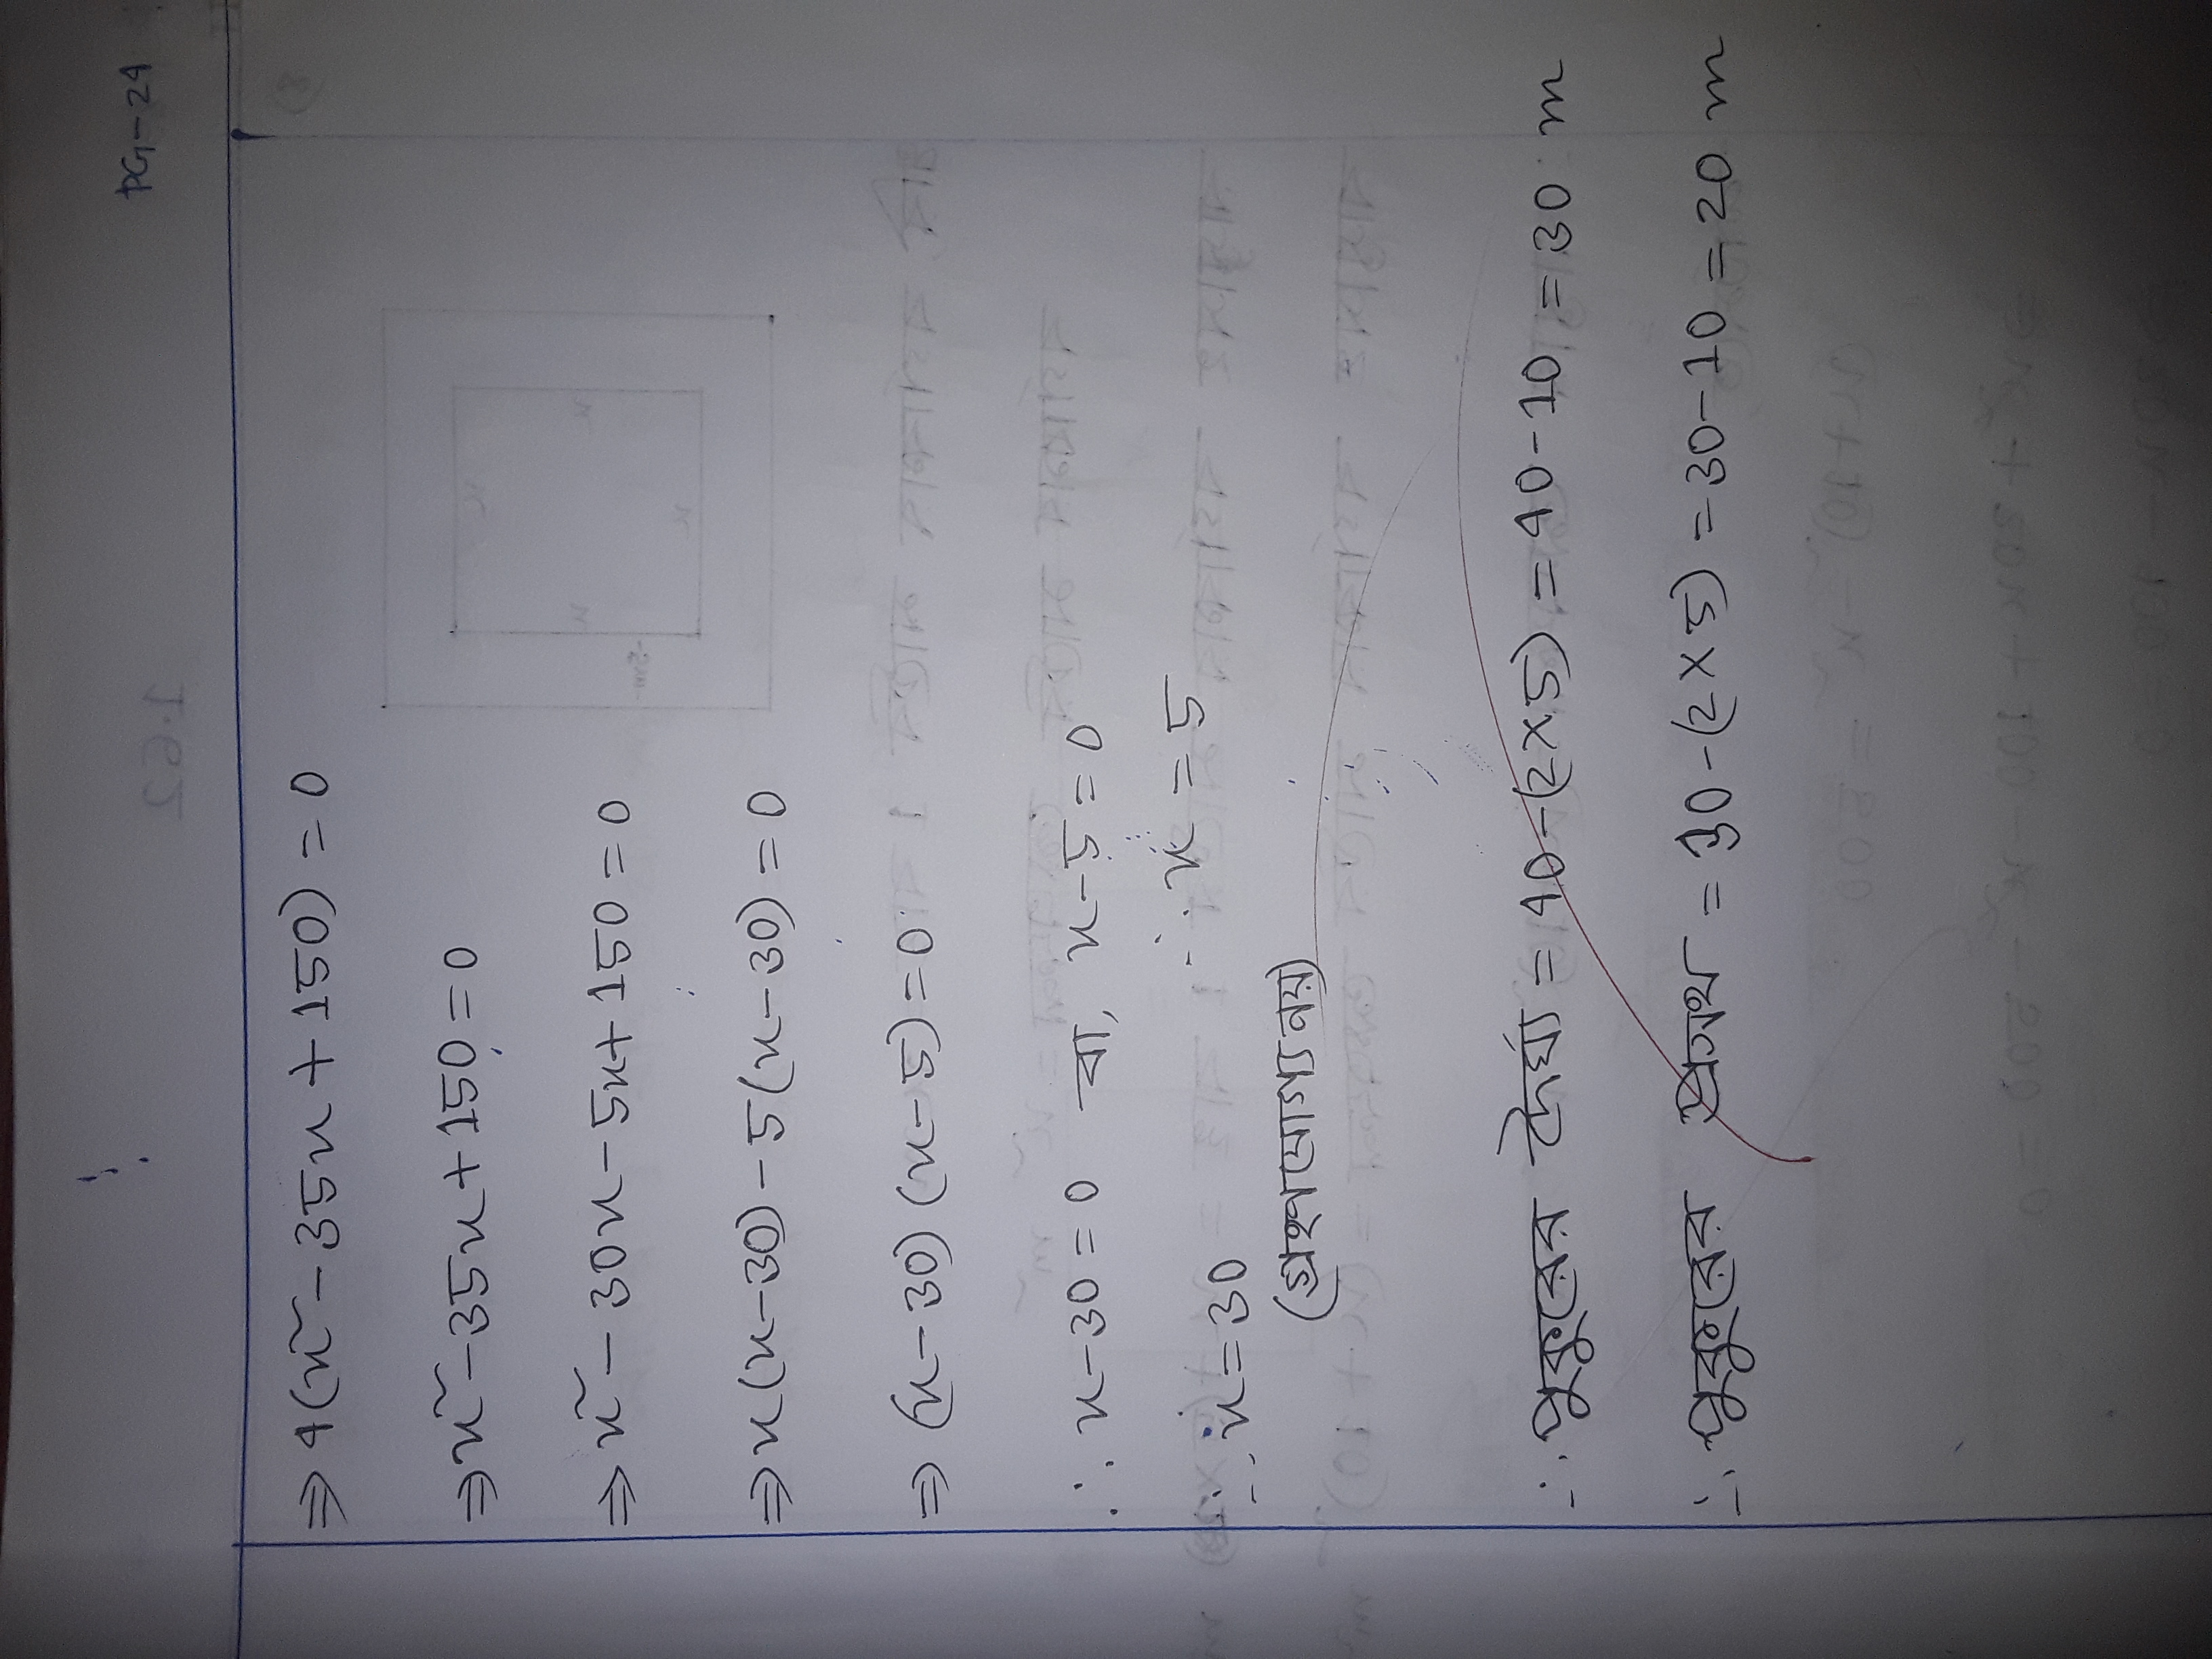 PG-24
⇒ 4(x² - 35x + 150) = 0
⇒ x² - 35x + 150 = 0
⇒ x² - 30x - 5x + 150 = 0
⇒ x(x-30) - 5(x-30) = 0
⇒ (x-30)(x-5) = 0
∴ x-30 = 0 বা, x-5 = 0
∴ x = 5
∴ x = 30
(গ্রহণযোগ্য নয়)
∴ পুকুরের দৈর্ঘ্য = 40-(2×5) = 40-10 = 30 m
∴ পুকুরের প্রসথ = 30-(2×5) = 30-10 = 20 m